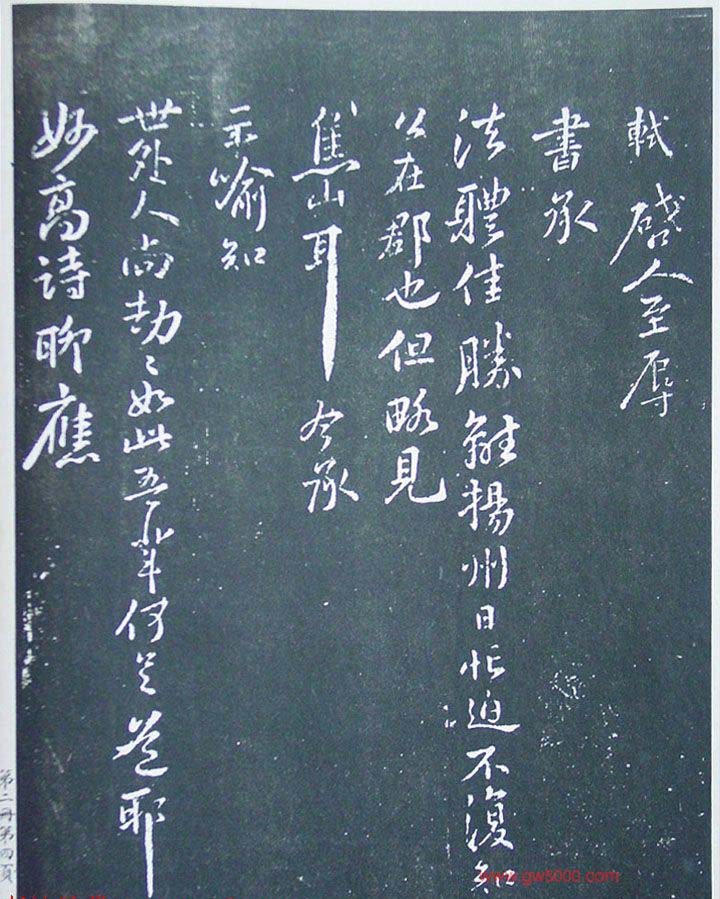 軾啓人至辱
書承
法體佳勝離揚州日忙迫不復知
公在郡也但略見
焦山耳今承
示喻知
世外人尚劫〻如此吾輩何足道耶
妙高詩聊應
第二冊第四頁
www.gw5000.com